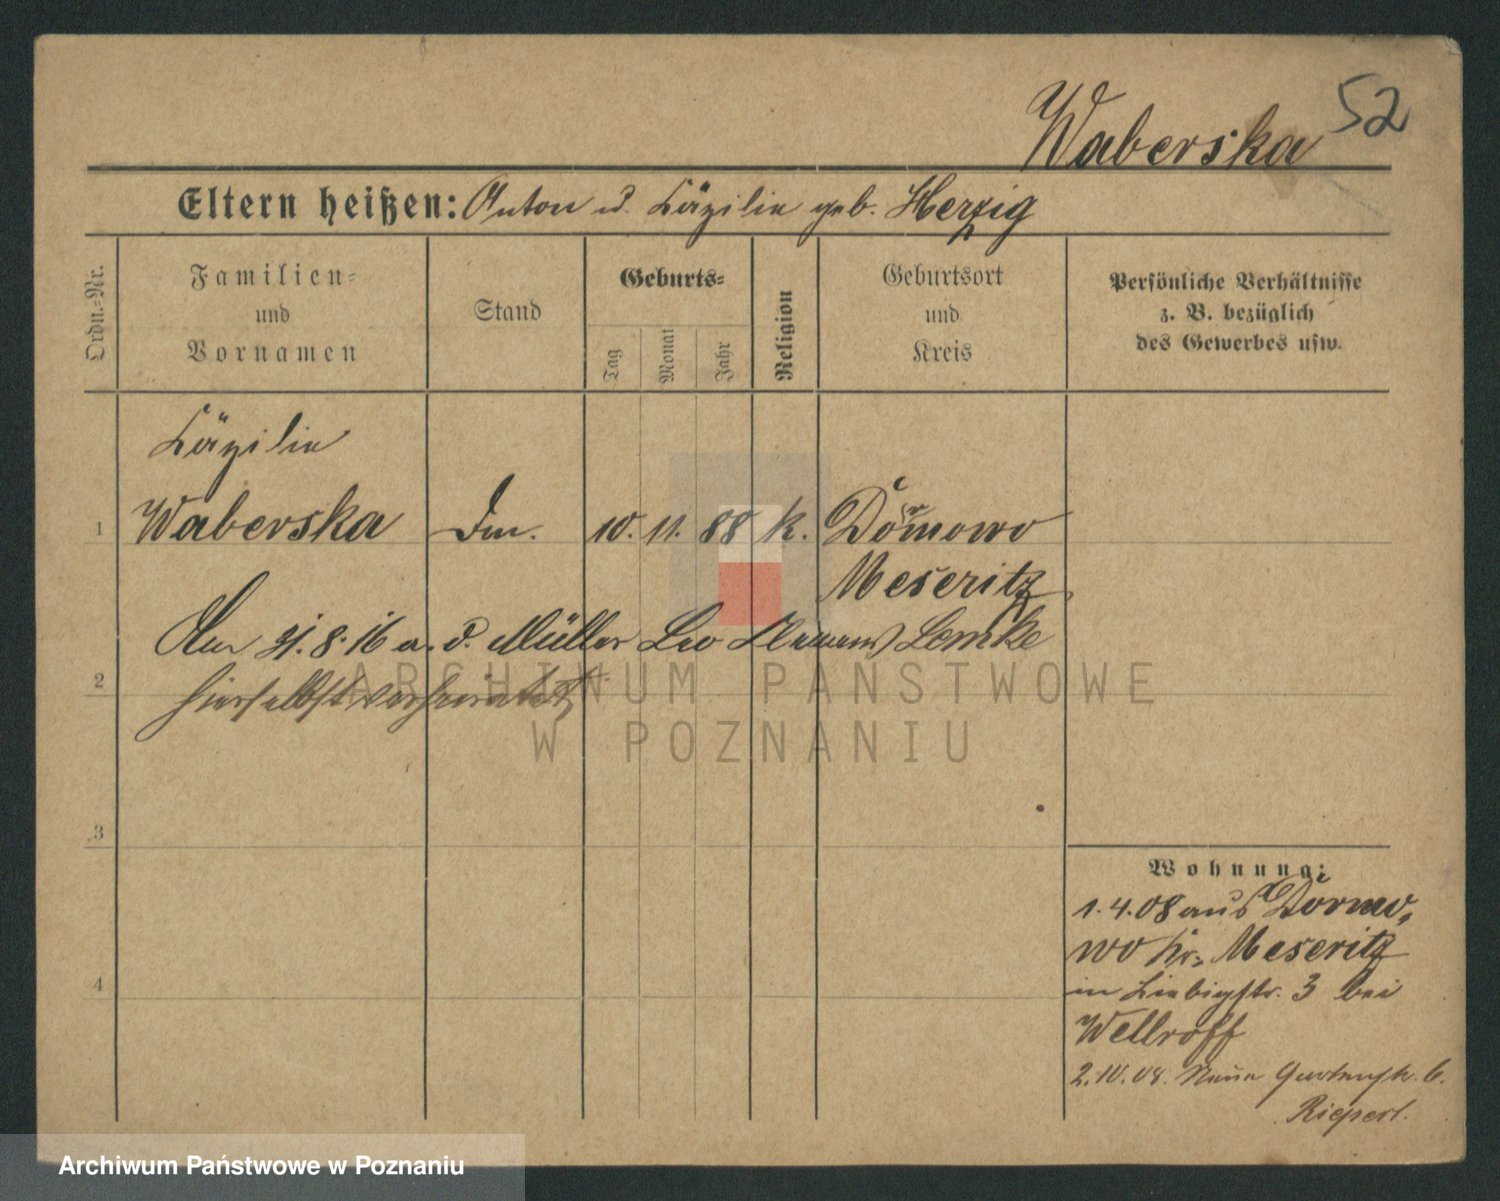 52
Waberska
Eltern heißen: Anton u. Cäzilie geb. Herzig
Ordn.-Nr.
Familien- und Vornamen
Stand
Geburts-
Tag
Monat
Jahr
Religion
Geburtsort und Kreis
Persönliche Verhältnisse
z. B. bezüglich
des Gewerbes usw.
Cäzilie
1 Waberska 10. 11. 88 k. Dormowo
Meseritz
Am 31.8.16 a. d. Müller Leo Clemens Lemke
2 hierselbst verheiratet
3
4
Wohnung:
1.4.08 aus Dormo-
wo Kr. Meseritz
in Liebigstr. 3 bei
Wellroff
2.10.08. Neue Gartenstr. 6.
ARCHIWUM PAŃSTWOWE
W POZNANIU
Archiwum Państwowe w Poznaniu